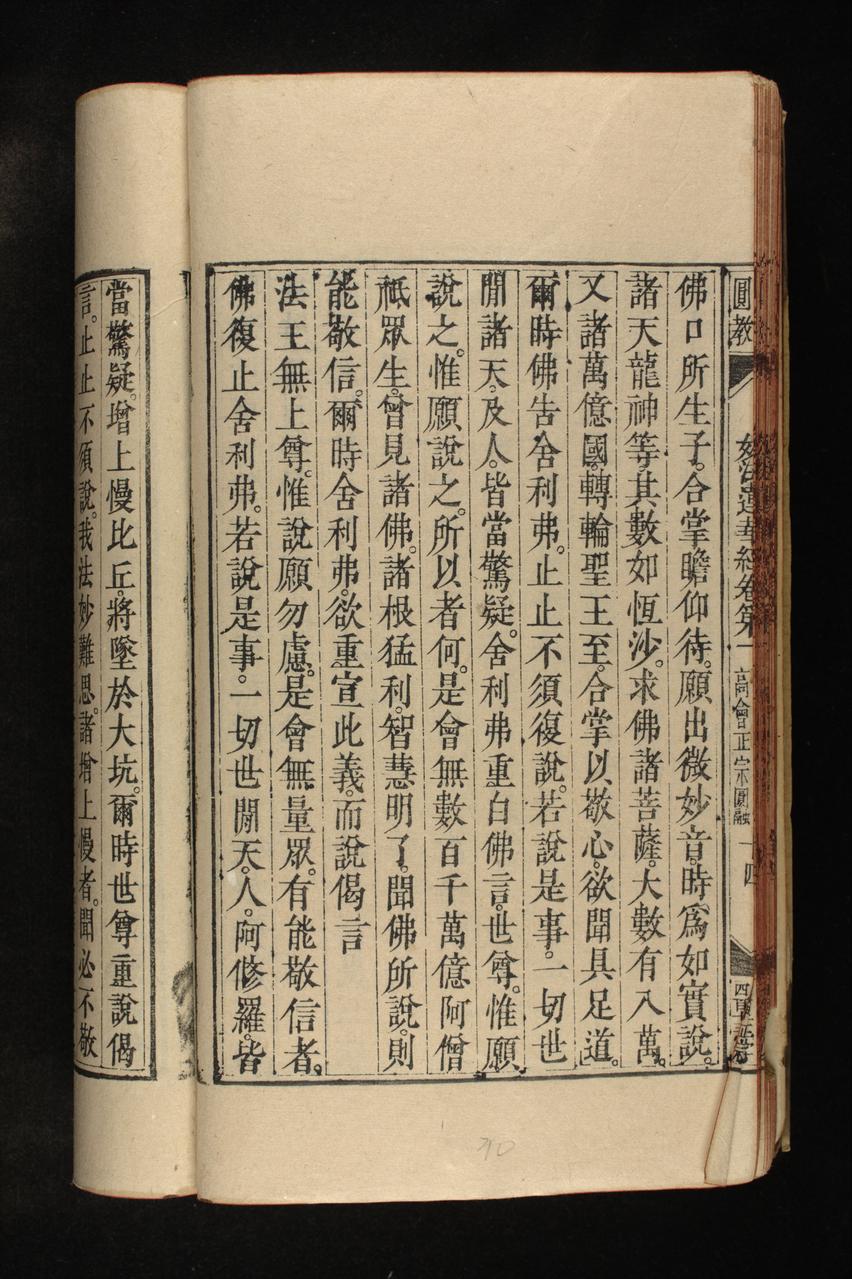 圓教
妙法蓮華經卷第一 高會正宗圓融 十四
佛口所生子。合掌瞻仰待。願出微妙音。時爲如實說。
諸天龍神等。其數如恆沙。求佛諸菩薩。大數有八萬。
又諸萬億國。轉輪聖王至。合掌以敬心。欲聞具足道。
爾時佛告舍利弗。止止不須復說。若說是事。一切世
閒諸天。及人。皆當驚疑。舍利弗重白佛言。世尊。惟願
說之。惟願說之。所以者何。是會無數百千萬億阿僧
祇眾生。曾見諸佛。諸根猛利。智慧明了。聞佛所說。則
能敬信。爾時舍利弗。欲重宣此義。而說偈言
法王無上尊。惟說願勿慮。是會無量眾。有能敬信者。
佛復止舍利弗。若說是事。一切世閒天。人。阿修羅。皆
當驚疑。增上慢比丘。將墜於大坑。爾時世尊重說偈
言。止止不須說。我法妙難思。諸增上慢者。聞必不敬